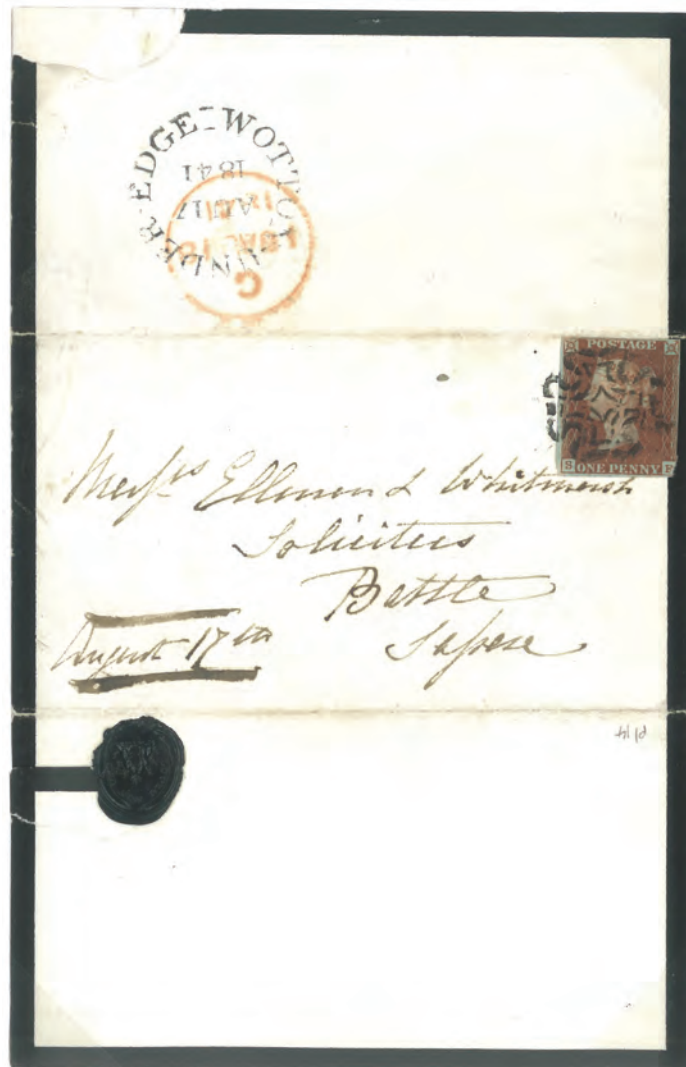 WOTTON UNDER EDGE
AU 17
1841
C
18 AU 18
1841
POSTAGE
S F
ONE PENNY
Messrs Ellman & Whitmarsh
Solicitors
Battle
Sussex
August 17th